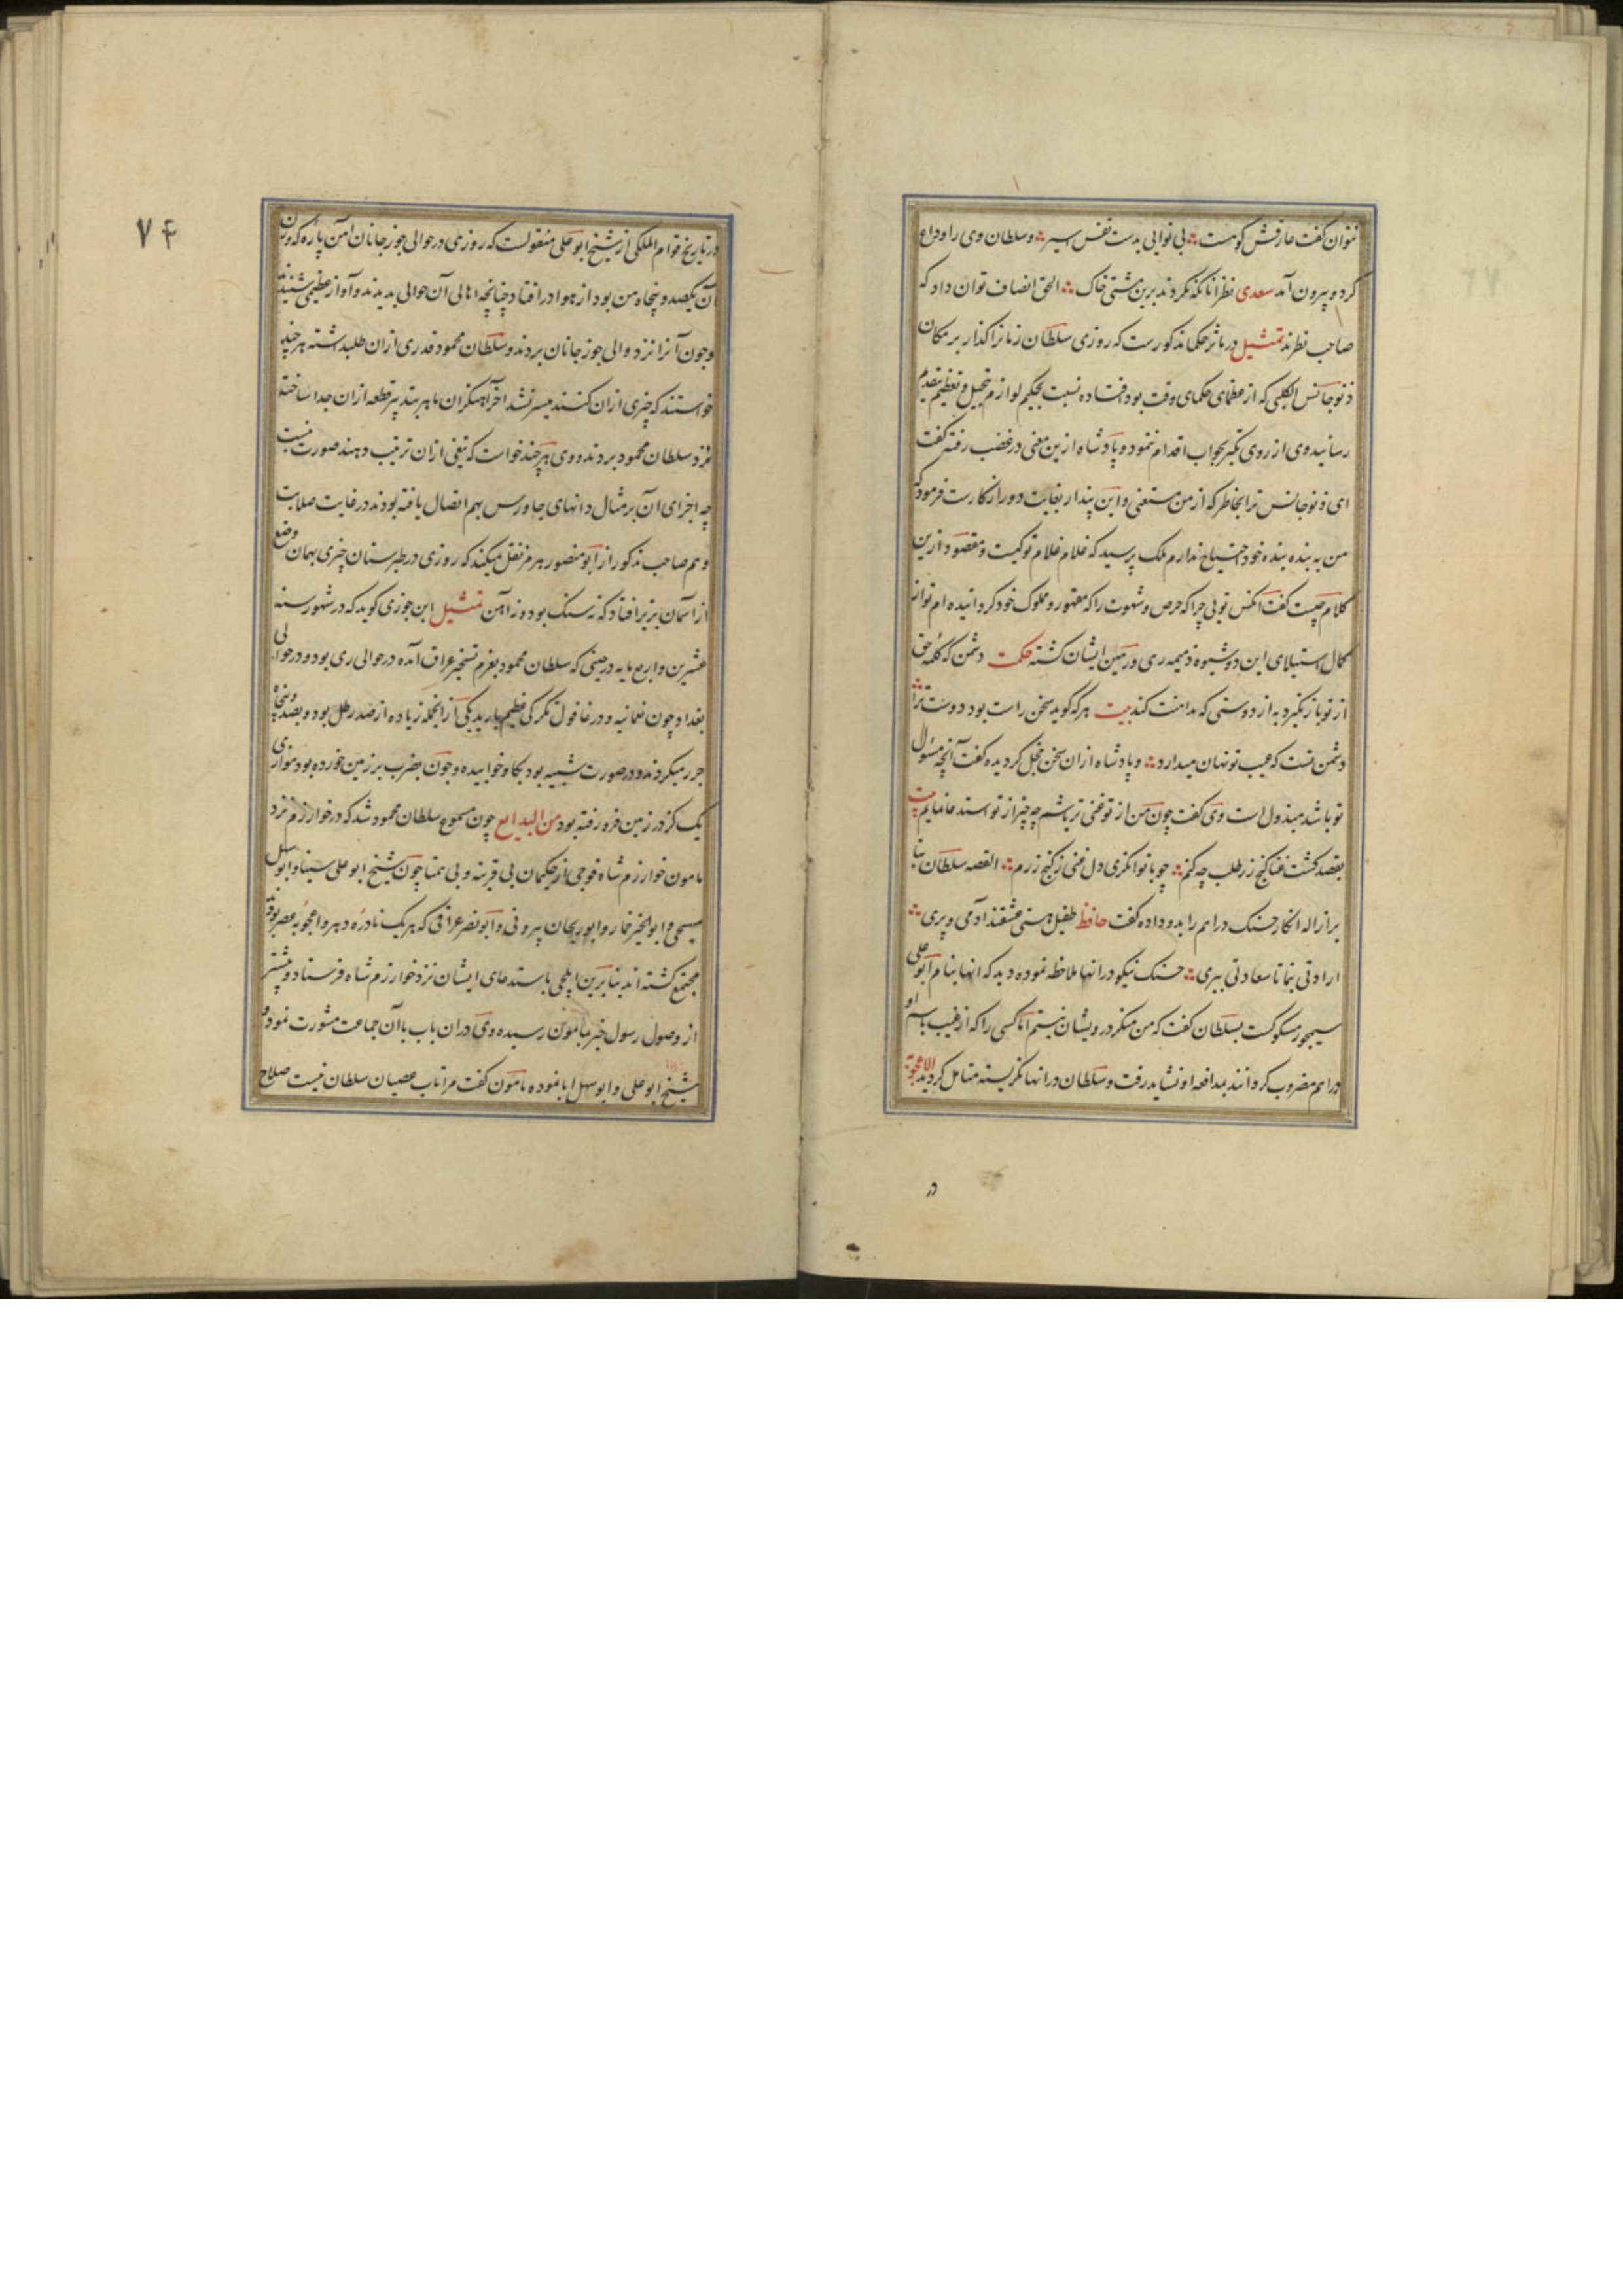 نتوان گفت عارفش کوهست بی نوایی بدست نفس اسیر وسلطان وی را وداع
کرد و بیرون آمد سعدی نظر آنانکه نکردند برین مشتی خاک الحق انصاف توان داد که
صاحب نظرند تمثیل در مآثر حکما مذکورست که روزی سلطان زمانرا گذار بر مکان
ذنوجانس الکلبی که از عظمای حکمای وقت بود افتاده نسبت بحکیم لوازم تبجیل و تعظیم بتقدیم
رسانید وی از روی تکبر بجواب اقدام ننمود و پادشاه ازین معنی در غضب رفته گفت
ای ذنوجانس ترا بخاطر که از من مستغنی و این پندار بغایت دور از کارست فرمود که
من به بنده بنده خود احتیاج ندارم ملک پرسید که غلام غلام تو کیست و مقصود ازین
کلام چیست گفت آنکس تویی چرا که حرص و شهوت را که مقهور و مملوک خود گردانیده ام تو از
کمال استیلای این دو شیوه ذمیمه ری و رهین ایشان گشته حکمت دشمن که کلمه حق
از تو باز نگیرد به از دوستی که مداهنت کند بیت هر که گوید سخن راست بود دوست ترا
دشمن تست که عیب تو نهان میدارد و پادشاه ازان سخن خجل گردیده گفت آنچه مسئول
تو باشد مبذول است وی گفت چون من از تو غنی تر باشم چه چیز از تو استدعا نمایم بیت
بقصد کشت فنا گنج زر طلب چه کنم چو با توانگری دل غنی ز گنج زرم القصه سلطان بنا
بر ازاله انکار حسنک دراهم را بدو داده گفت حافظ طفیل هستی عشقند آدمی و پری
ارادتی بنما تا سعادتی ببری حسنک نیکو در انها ملاحظه نموده دید که انها بنام ابو علی
سیمجور مسکوکست بسلطان گفت که من منکر درویشان نیستم اما کسی را که از غیب باسم او
دراهم مضروب گردانند بمدافعه او نشاید رفت و سلطان در انها نگریسته متامل گردید الاعجوبة
در
۷۴
در تاریخ قوام الملکی از شیخ ابو علی منقولست که روزی در حوالی جوزجانان آهن پاره که وزن
آن یکصد و پنجاه من بود از هوا در افتاد چنانچه اهالی آن حوالی بدیدند و آواز عظیمی شنیدند
و چون آنرا نزد والی جوزجانان بردند و سلطان محمود قدری ازان طلبداشته هر چند
خواستند که چیزی ازان کنند میسر نشد آخر آهنگران ماهر بتدبیر قطعه ازان جدا ساخته
نزد سلطان محمود بردند و وی هر چند خواست که تیغی ازان ترتیب دهند صورت نبست
چه اجزای آن بر مثال دانهای جاورس بهم اتصال یافته بودند در غایت صلابت
و هم صاحب مذکور از ابو منصور هرمز نقل میکند که روزی در طبرستان چیزی بهمان وضع
از آسمان بزیر افتاد که نه سنک بود و نه آهن تمثیل ابن جوزی گوید که در شهور سنه
عشرین و اربع مایه در حینی که سلطان محمود بعزم تسخیر عراق آمده در حوالی ری بود و در حوالی
بغداد چون نعمانیه و در عاقول تگرگی عظیم بارید یکی از انجمله زیاده از صد رطل بود و بصد و پنجاه
جرر میکردند و در صورت شبیه بود بگاو خوابیده و چون بضرب بر زمین خورده بود موازی
یک گز در زمین فرو رفته بود من البدایع چون مسموع سلطان محمود شد که در خوارزم نزد
مامون خوارزم شاه فوجی از حکیمان بی قرینه و بی همتا چون شیخ ابو علی سینا و ابو سهل
مسیحی و ابو الخیر خمار و ابو ریحان بیرونی و ابو نصر عراقی که هر یک نادره دهر و اعجوبه عصر بودند
مجتمع گشته اند بنا برین ایلچی باستدعای ایشان نزد خوارزم شاه فرستاد و پیشتر
از وصول رسول خبر بمامون رسیده وی دران باب با آن جماعت مشورت نمود و
شیخ ابو علی و ابو سهل ابا نموده مامون گفت مرا تاب عصیان سلطان نیست صلاح